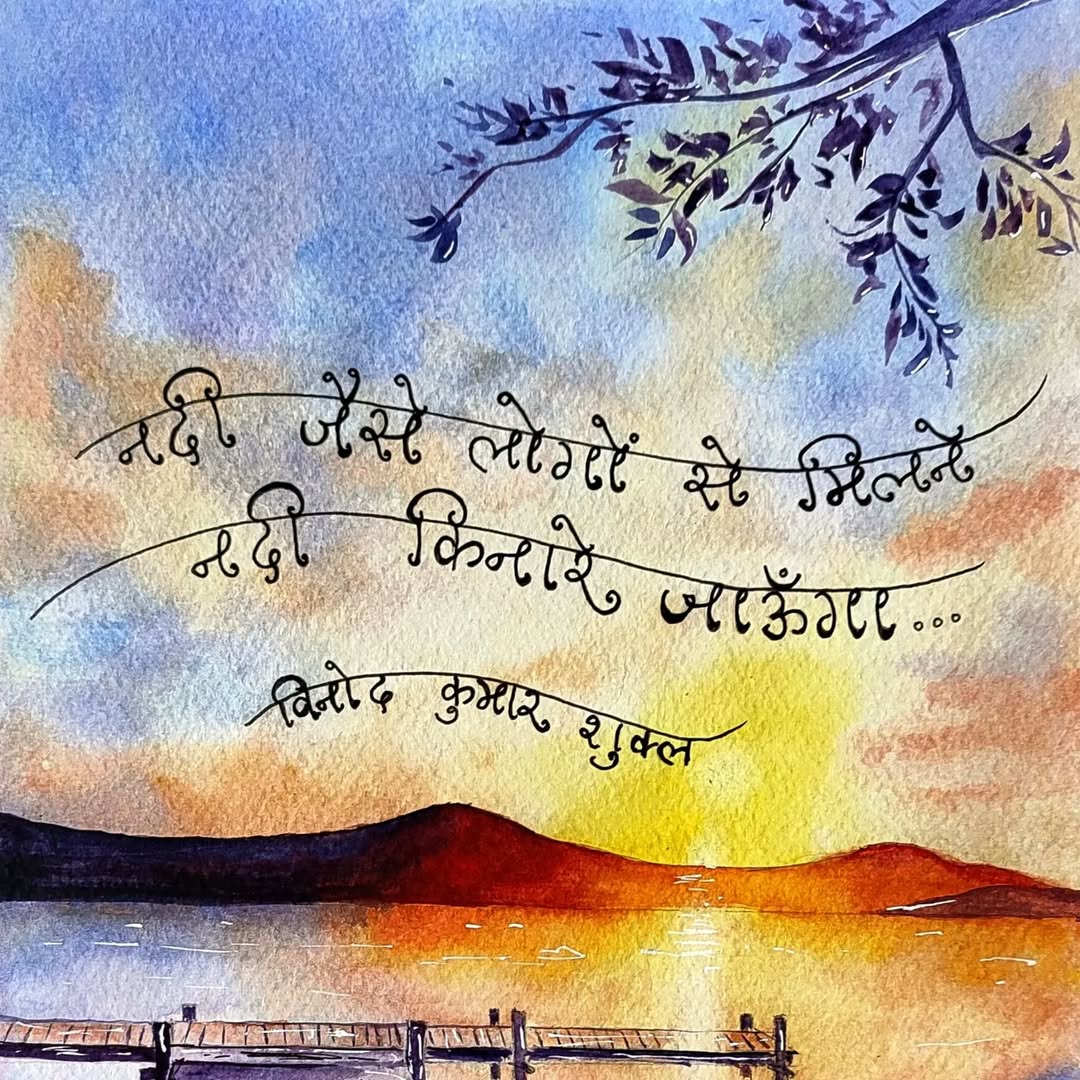 नदी जैसे लोगों से मिलने
नदी किनारे जाऊँगा...
विनोद कुमार शुक्ल